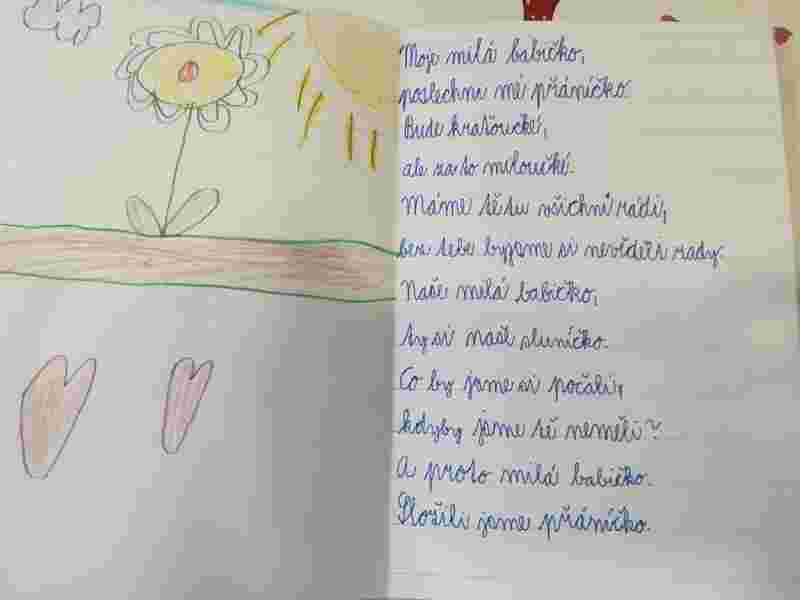 Moje milá babičko,
poslechni mé přáníčko.
Bude kraťoučké,
ale za to miloučké.
Máme tě tu všichni rádi,
bez tebe byjsme si nevěděli rady.
Naše milá babičko,
ty si naše sluníčko.
Co by jsme si počali,
kdyby jsme tě neměli?
A proto milá babičko.
Složili jsme přáníčko.